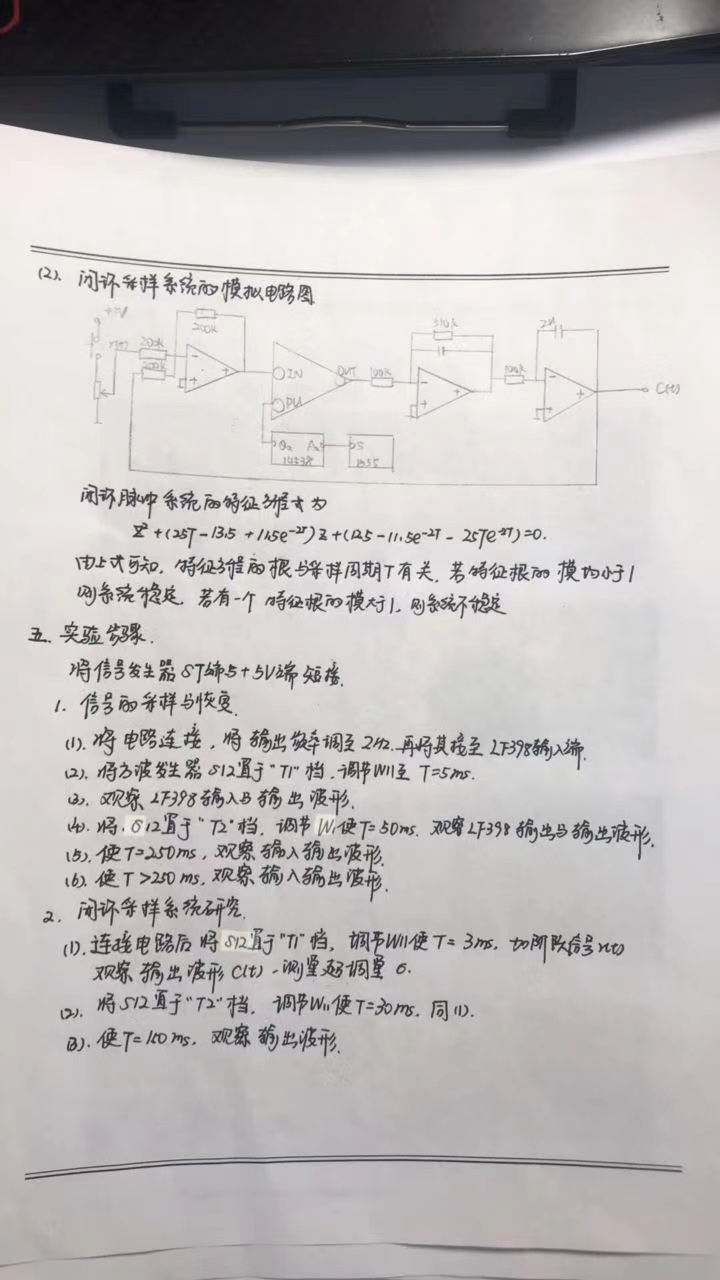 (2). 闭环采样系统的模拟电路图
+5V
200k
r(t) 200k
200k
510k
2μ
IN OUT 100k 100k
PU
C(t)
Q2 A2 S
14538 1555
闭环脉冲系统的特征方程式为
Z²+(25T-13.5+11.5e^-2T)z+(12.5-11.5e^-2T-25Te^-2T)=0.
由上式可知，特征方程的根与采样周期T有关，若特征根的模均小于1
则系统稳定，若有一个特征根的模大于1，则系统不稳定
五. 实验步骤.
将信号发生器ST端5+5V端短接.
1. 信号的采样与恢复.
(1). 将电路连接，将输出频率调至2Hz. 再将其接至LF398输入端.
(2). 将方波发生器S12置于"T1"档，调节W11至T=5ms.
(3). 观察LF398输入与输出波形.
(4). 将S12置于"T2"档，调节W1使T=50ms. 观察LF398输出与输出波形.
(5). 使T=250ms，观察输入输出波形.
(6). 使T>250ms，观察输入输出波形.
2. 闭环采样系统研究.
(1). 连接电路后将S12置于"T1"档，调节W11使T=3ms. 加阶跃信号r(t)
观察输出波形C(t)，测量超调量σ.
(2). 将S12置于"T2"档，调节W11使T=30ms，同(1).
(3). 使T=150ms，观察输出波形.